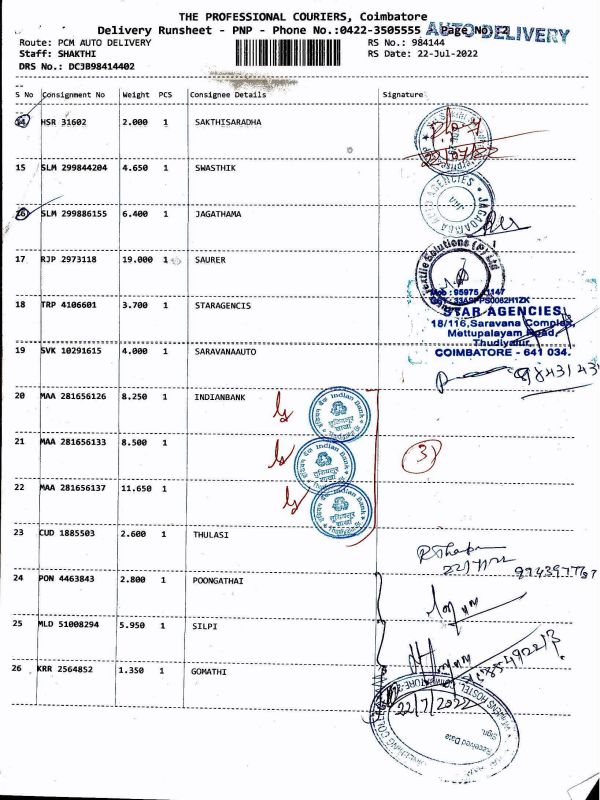 THE PROFESSIONAL COURIERS, Coimbatore
Delivery Runsheet - PNP - Phone No.:0422-3505555 Page No: 2
AUTO DELIVERY
Route: PCM AUTO DELIVERY RS No.: 984144
Staff: SHAKTHI RS Date: 22-Jul-2022
DRS No.: DCJB98414402
S No Consignment No Weight PCS Consignee Details Signature
14 HSR 31602 2.000 1 SAKTHISARADHA
22/07/22
15 SLM 299844204 4.650 1 SWASTHIK
AUTO AGENCIES * JAGADAMBA
16 SLM 299886155 6.400 1 JAGATHAMA
17 RJP 2973118 19.000 1 SAURER
Textile Solutions (P) Ltd
18 TRP 4106601 3.700 1 STARAGENCIS
STAR AGENCIES
18/116,Saravana Complex,
Mettupalayam Road,
Thudiyalur,
COIMBATORE - 641 034.
19 SVK 10291615 4.000 1 SARAVANAAUTO
20 MAA 281656126 8.250 1 INDIANBANK
Indian Bank
21 MAA 281656133 8.500 1
Indian Bank
3
22 MAA 281656137 11.650 1
Indian Bank
23 CUD 1885503 2.600 1 THULASI
22/7/22
24 PON 4463843 2.800 1 POONGATHAI
25 MLD 51008294 5.950 1 SILPI
26 KRR 2564852 1.350 1 GOMATHI
22/7/2022
Sign.
Received Date